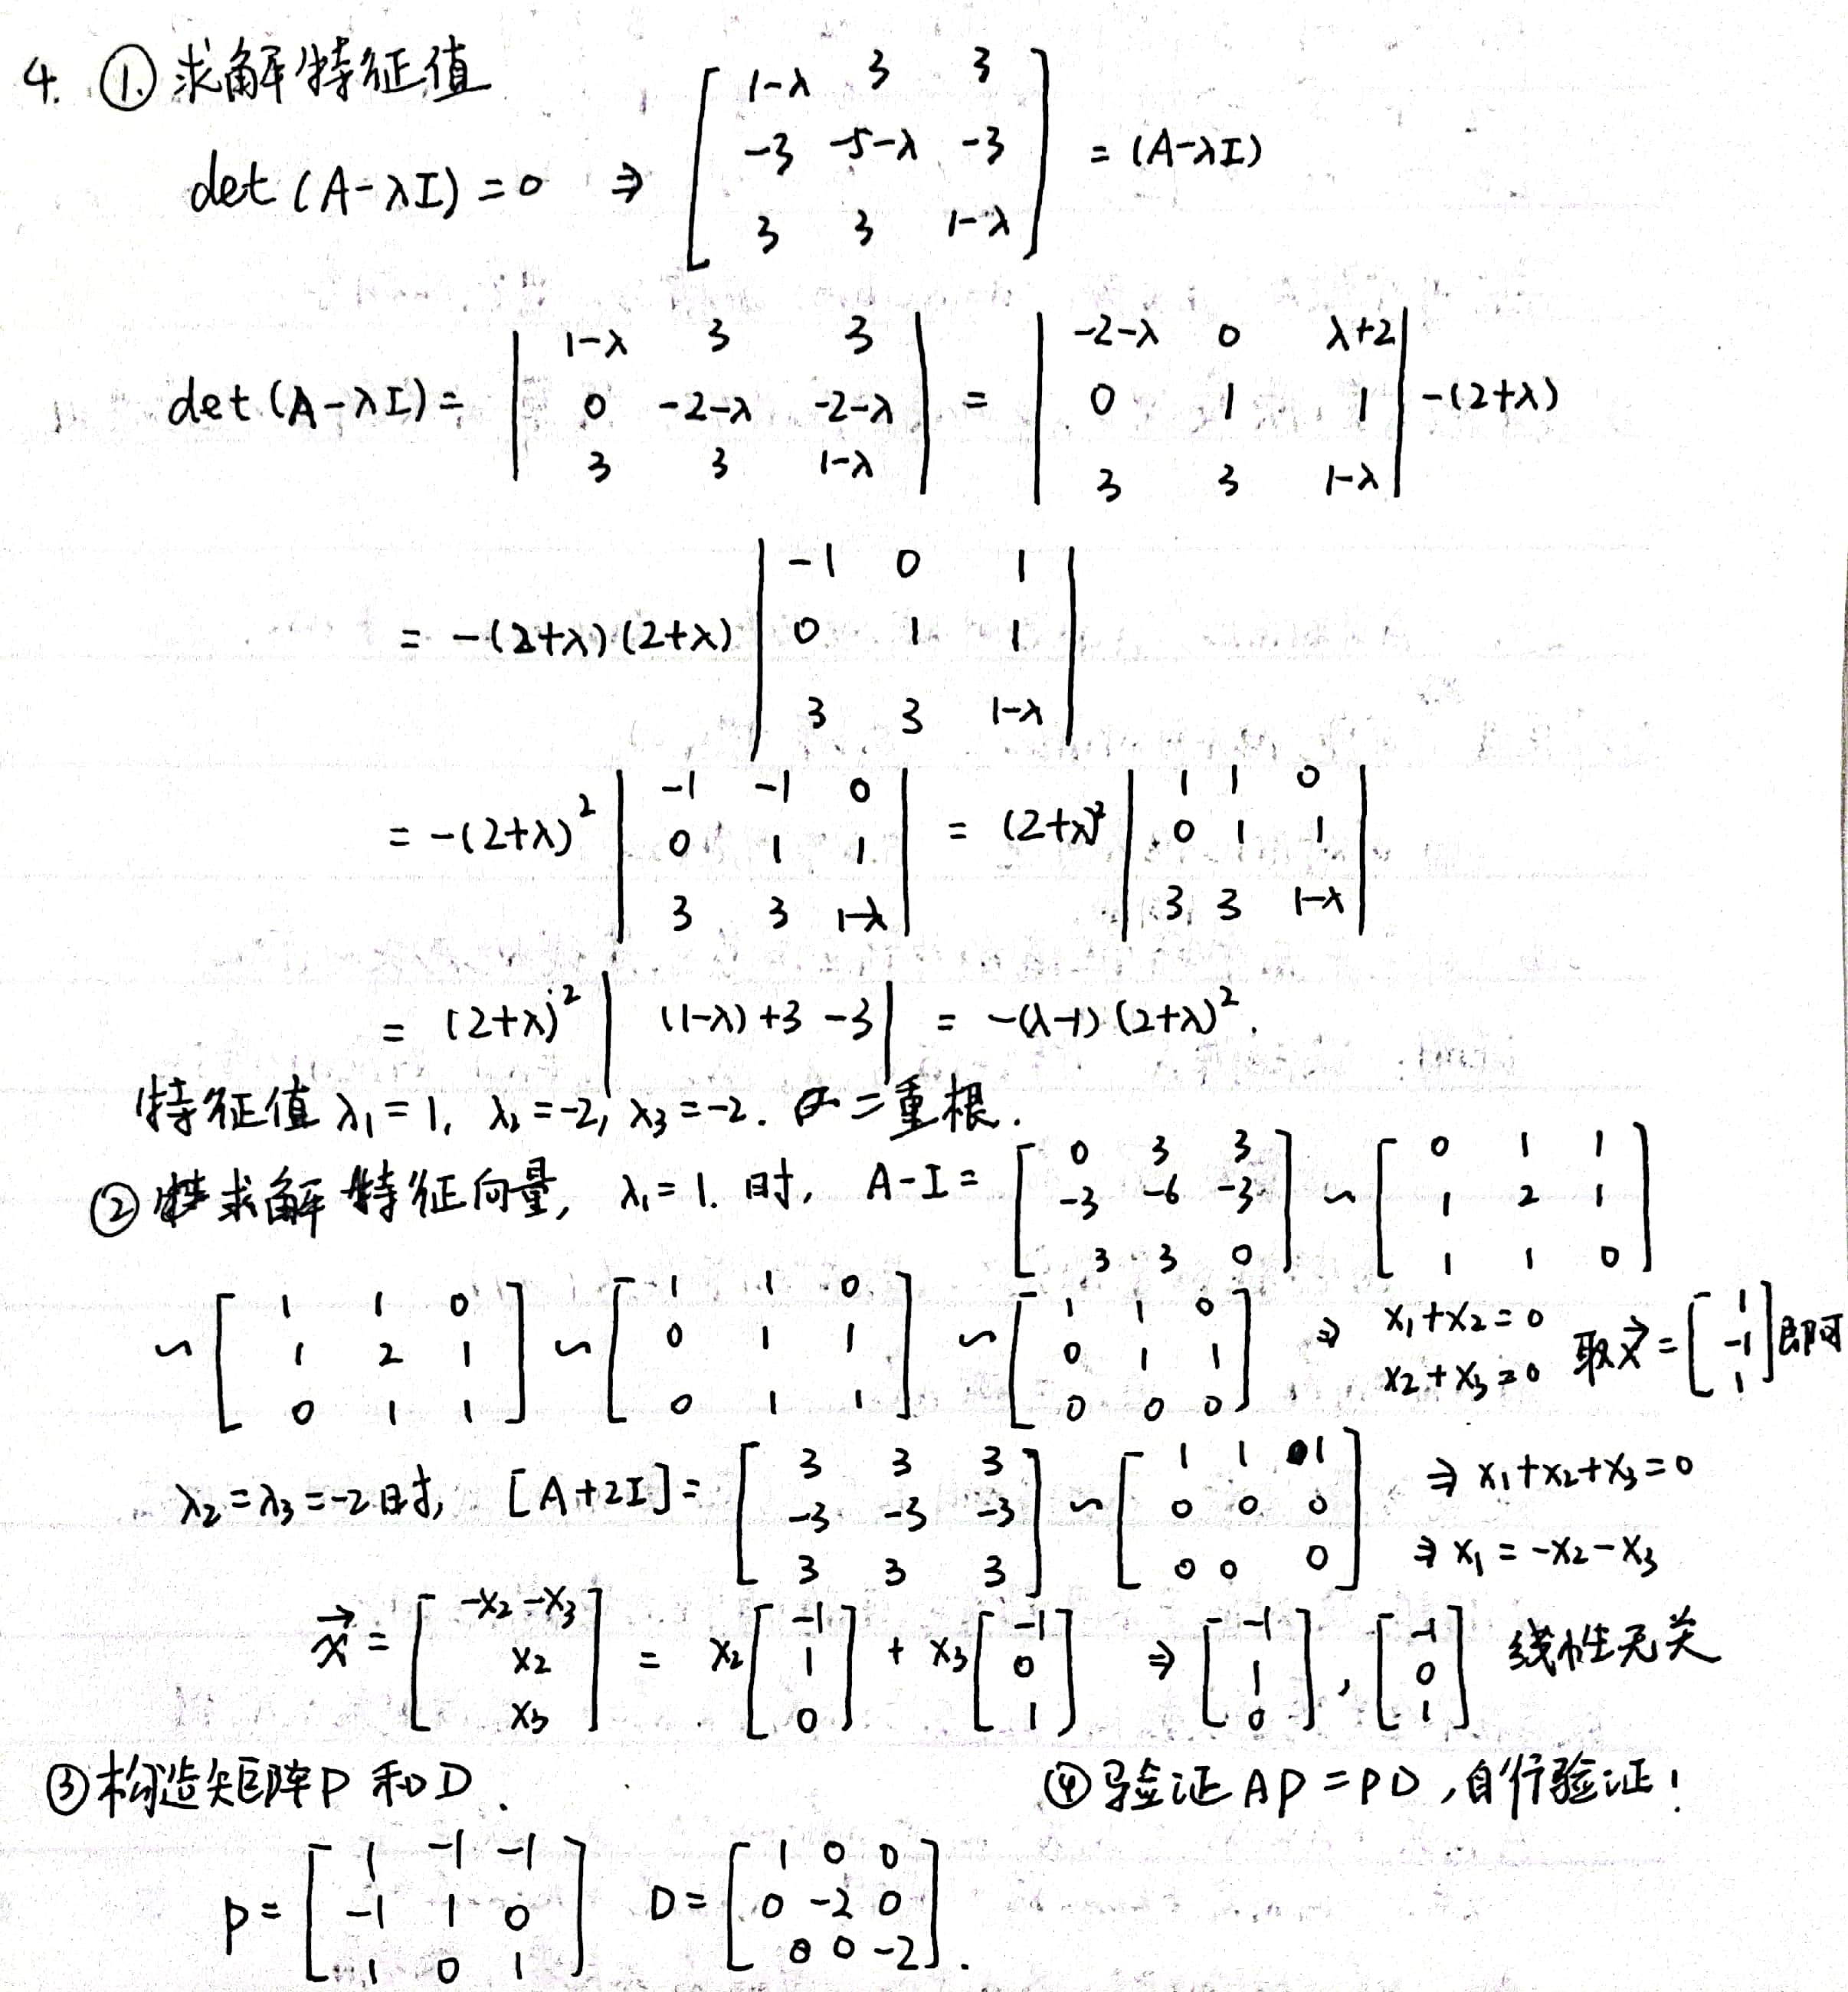 4. ① 求解特征值
det (A-λI) = 0 ⇒ [ 1-λ 3 3 ; -3 -5-λ -3 ; 3 3 1-λ ] = (A-λI)
det (A-λI) = | 1-λ 3 3 ; 0 -2-λ -2-λ ; 3 3 1-λ | = | -2-λ 0 λ+2 ; 0 1 1 ; 3 3 1-λ | -(2+λ)
= -(2+λ)(2+λ) | -1 0 1 ; 0 1 1 ; 3 3 1-λ |
= -(2+λ)² | -1 -1 0 ; 0 1 1 ; 3 3 1-λ | = (2+λ)² | 1 1 0 ; 0 1 1 ; 3 3 1-λ |
= (2+λ)² | (1-λ)+3-3 | = -(λ-1)(2+λ)².
特征值 λ₁=1, λ₂=-2, λ₃=-2. 二重根.
② 求解特征向量, λ₁=1. 时, A-I = [ 0 3 3 ; -3 -6 -3 ; 3 3 0 ] ~ [ 0 1 1 ; 1 2 1 ; 1 1 0 ]
~ [ 1 1 0 ; 1 2 1 ; 0 1 1 ] ~ [ 1 1 0 ; 0 1 1 ; 0 1 1 ] ~ [ 1 1 0 ; 0 1 1 ; 0 0 0 ] ⇒ x₁+x₂=0 x₂+x₃=0 取x⃗ = [ 1 ; -1 ; 1 ] 即可
λ₂=λ₃=-2时, [A+2I] = [ 3 3 3 ; -3 -3 -3 ; 3 3 3 ] ~ [ 1 1 1 ; 0 0 0 ; 0 0 0 ] ⇒ x₁+x₂+x₃=0
⇒ x₁=-x₂-x₃
x⃗ = [ -x₂-x₃ ; x₂ ; x₃ ] = x₂ [ -1 ; 1 ; 0 ] + x₃ [ -1 ; 0 ; 1 ] ⇒ [ -1 ; 1 ; 0 ], [ -1 ; 0 ; 1 ] 线性无关
③ 构造矩阵P 和 D.
④ 验证 AP=PD, 自行验证!
P = [ 1 -1 -1 ; -1 1 0 ; 1 0 1 ] D = [ 1 0 0 ; 0 -2 0 ; 0 0 -2 ].